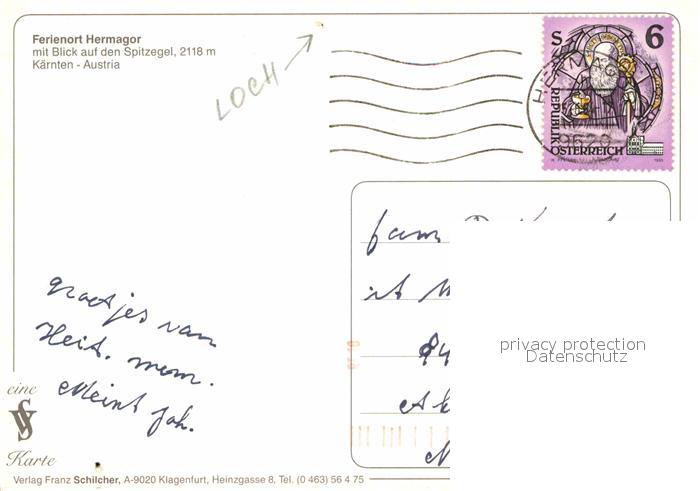 Ferienort Hermagor
mit Blick auf den Spitzegel, 2118 m
Kärnten - Austria
LOCH
S 6
HERMAG
9620
REPUBLIK
ÖSTERREICH
fam
it
privacy protection
Datenschutz
groetjes van
Heit. mem.
Meint Joh.
eine
Karte
Verlag Franz Schilcher, A-9020 Klagenfurt, Heinzgasse 8, Tel. (0 463) 56 4 75